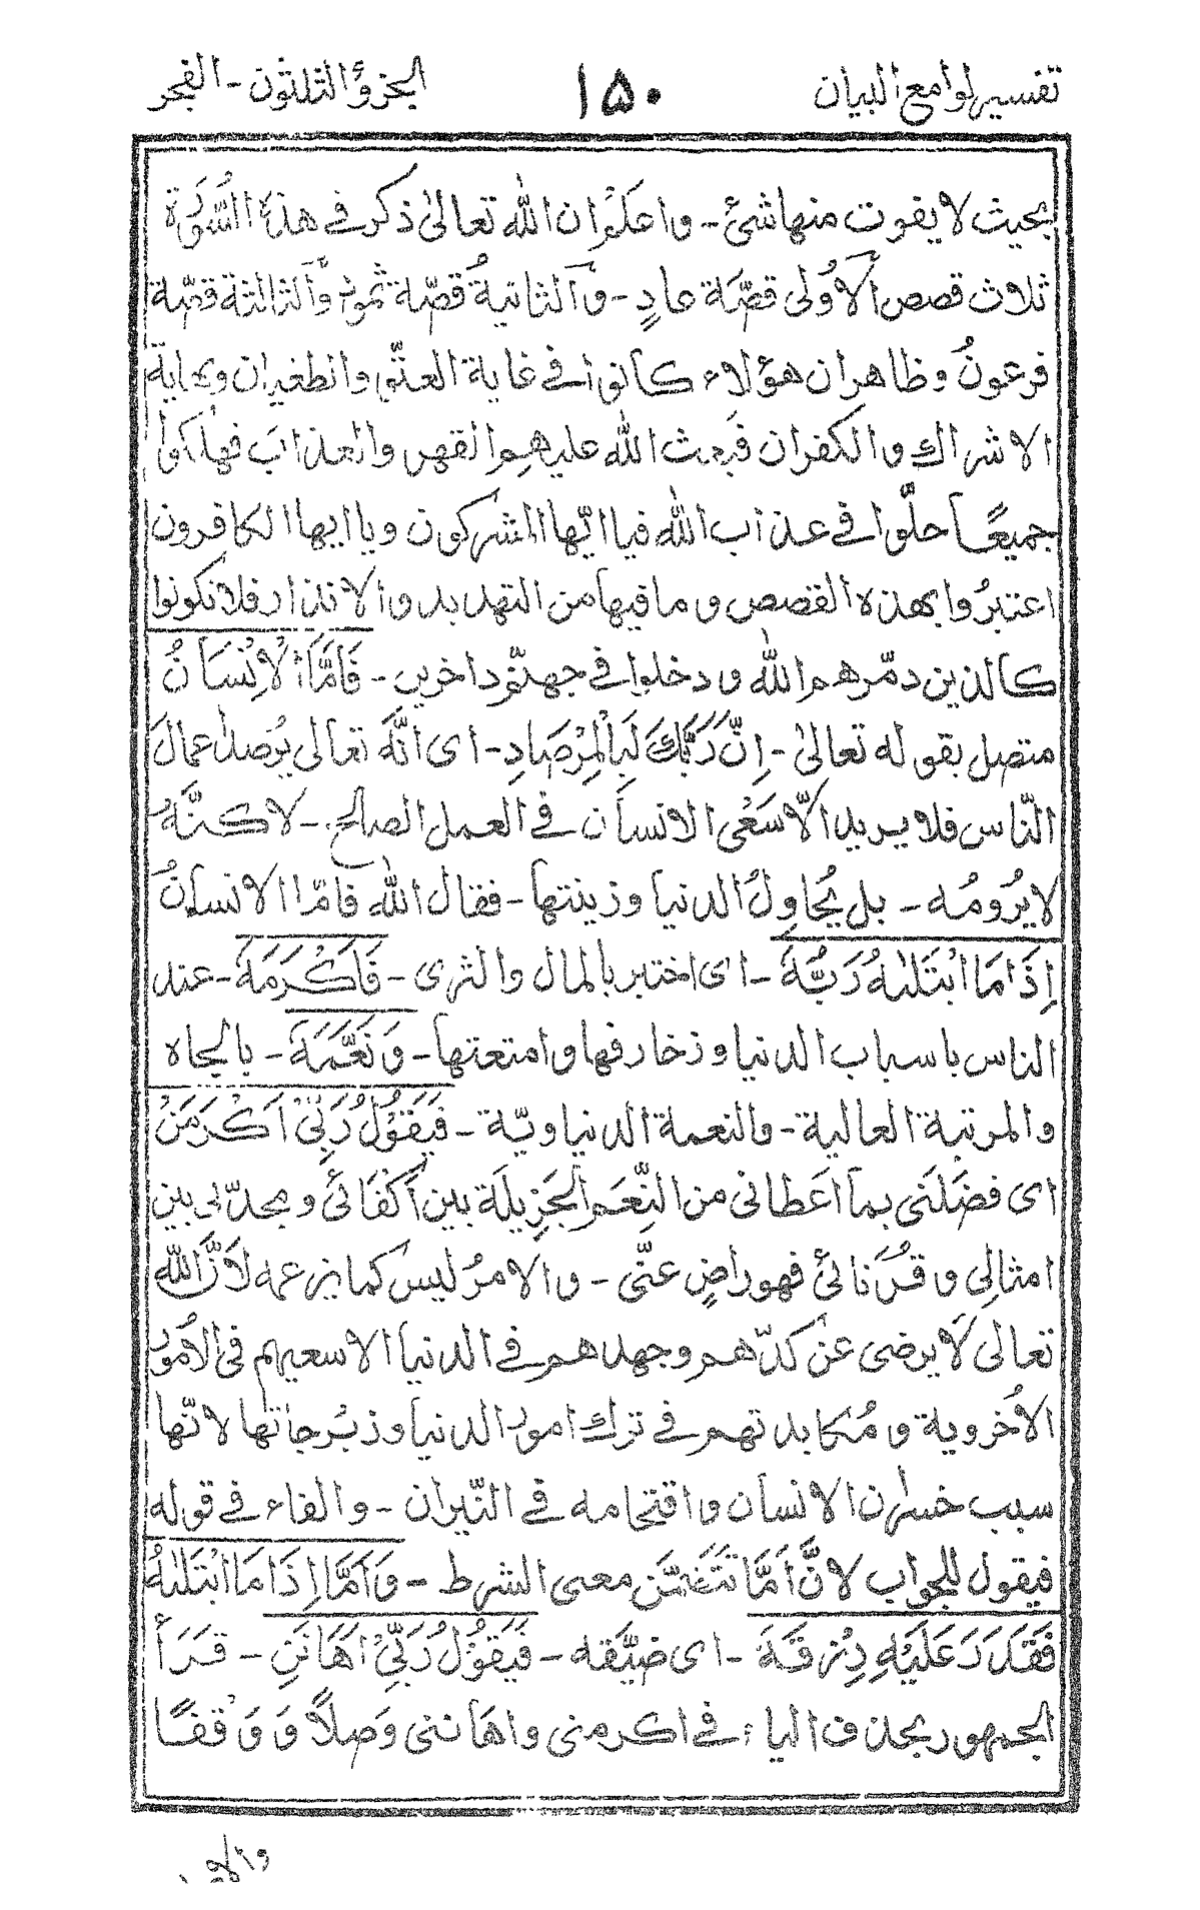 تفسير لوامع البيان ١٥٠ الجزؤ الثلثون - الفجر
بحيث لا يفوت منها شئ - واعلم ان الله تعالىٰ ذكر في هذه السُّورَة
ثلاث قصص اَلاُولى قصّة عادٍ - وَالثانيةُ قصّة ثمود وَالثالثة قصّة
فرعونُ وظاهران هؤلاء كانوا في غاية العتوّ والطغيان ونهاية
الاشراك والكفران فبعث الله عليهم القهر والعذابَ فهلكوا
جميعًا حلّوا في عذاب الله فيا ايّها المشركون ويا ايها الكافرون
اعتبرُوا بهذه القصص وما فيها من التهديد والانذار فلا تكونوا
كالذين دمّرهم الله ودخلوا في جهنّم داخرين - فَاَمَّا الْاِنْسَانُ
متصل بقوله تعالىٰ - اِنَّ رَبَّكَ لَبِالْمِرْصَادِ - اى انّه تعالى يرُصد اعمالَ
النّاس فلا يريد الّا سَعْى الانسان في العمل الصالح - لاكنَّهُ
لا يرُومُه - بل يُحاوِلُ الدنيا وزينتها - فقال الله فامّا الانسانُ
اِذَا مَا ابْتَلٰىهُ رَبُّهٗ - اى اختبر بالمال والثرى - فَاَكْرَمَهٗ - عند
الناس باسباب الدنيا وزخارفها وامتعتها - وَنَعَّمَهٗ - بالجاه
والمرتبة العالية - والنعمة الدنياويّة - فَيَقُوْلُ رَبِّىْ اَكْرَمَنْ
اى فضّلَنى بما اَعطانى من النِّعَم الجَزِيلَة بين اَكْفَائى ومجدّنى بين
امثالِى وقُرَنائى فهو راضٍ عنّى - والامرُ ليس كما يزعمه لاَنَّ الله
تعالى لَا يرضى عن كدّهم وجهدهم في الدنيا الا سعيهم فى الاُمور
الاُخروية ومُكابدتهم في ترك امور الدنيا وزبُرجاتها لانّها
سبب خسران الانسان واقتحامه في النّيران - والفاء في قوله
فيقول للجواب لانَّ اَمَّا تَتَضَمَّن معنى الشرط - وَاَمَّا اِذَا مَا ابْتَلٰىهُ
فَقَدَرَ عَلَيْهِ رِزْقَهٗ - اى ضيّقه - فَيَقُوْلُ رَبِّىْ اَهَانَنِ - قَرَأَ
الجمهور بحذف الياء في اكرمنى واهاننى وَصلًا وَوَقفًا